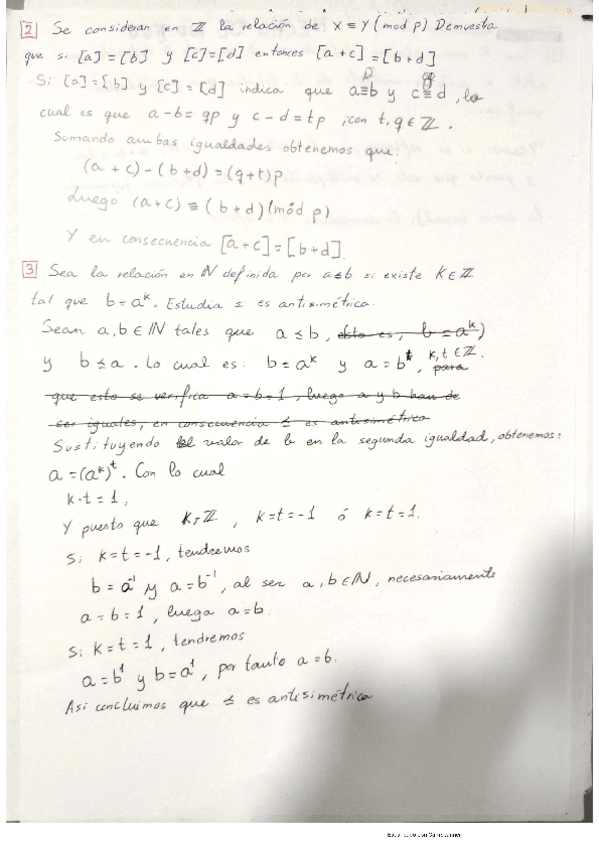 2 Se consideran en ℤ la relación de x ≡ y (mod p) Demuestra
que si [a] = [b] y [c] = [d] entonces [a + c] = [b + d]
Si [a] = [b] y [c] = [d] indica que a ≡ b y c ≡ d, lo
cual es que a - b = qp y c - d = tp, con t, q ∈ ℤ.
Sumando ambas igualdades obtenemos que:
(a + c) - (b + d) = (q + t) p
Luego (a + c) ≡ (b + d) (mód p)
Y en consecuencia [a + c] = [b + d].
3 Sea la relación en ℕ definida por a ≤ b si existe K ∈ ℤ
tal que b = a^k. Estudia si es antisimétrica.
Sean a, b ∈ ℕ tales que a ≤ b, esto es, b = a^k)
y b ≤ a. Lo cual es: b = a^k y a = b^t, k, t ∈ ℤ. para
que esto se verifica a = b = 1, luego a y b han de
ser iguales, en consecuencia ≤ es antisimétrica
Sustituyendo el valor de b en la segunda igualdad, obtenemos:
a = (a^k)^t. Con lo cual
k · t = 1,
Y puesto que K, ℤ, k = t = -1 ó k = t = 1.
Si k = t = -1, tendremos
b = a^-1 y a = b^-1, al ser a, b ∈ ℕ, necesariamente
a = b = 1, luego a = b.
Si k = t = 1, tendremos
a = b^1 y b = a^1, por tanto a = b.
Así concluimos que ≤ es antisimétrica